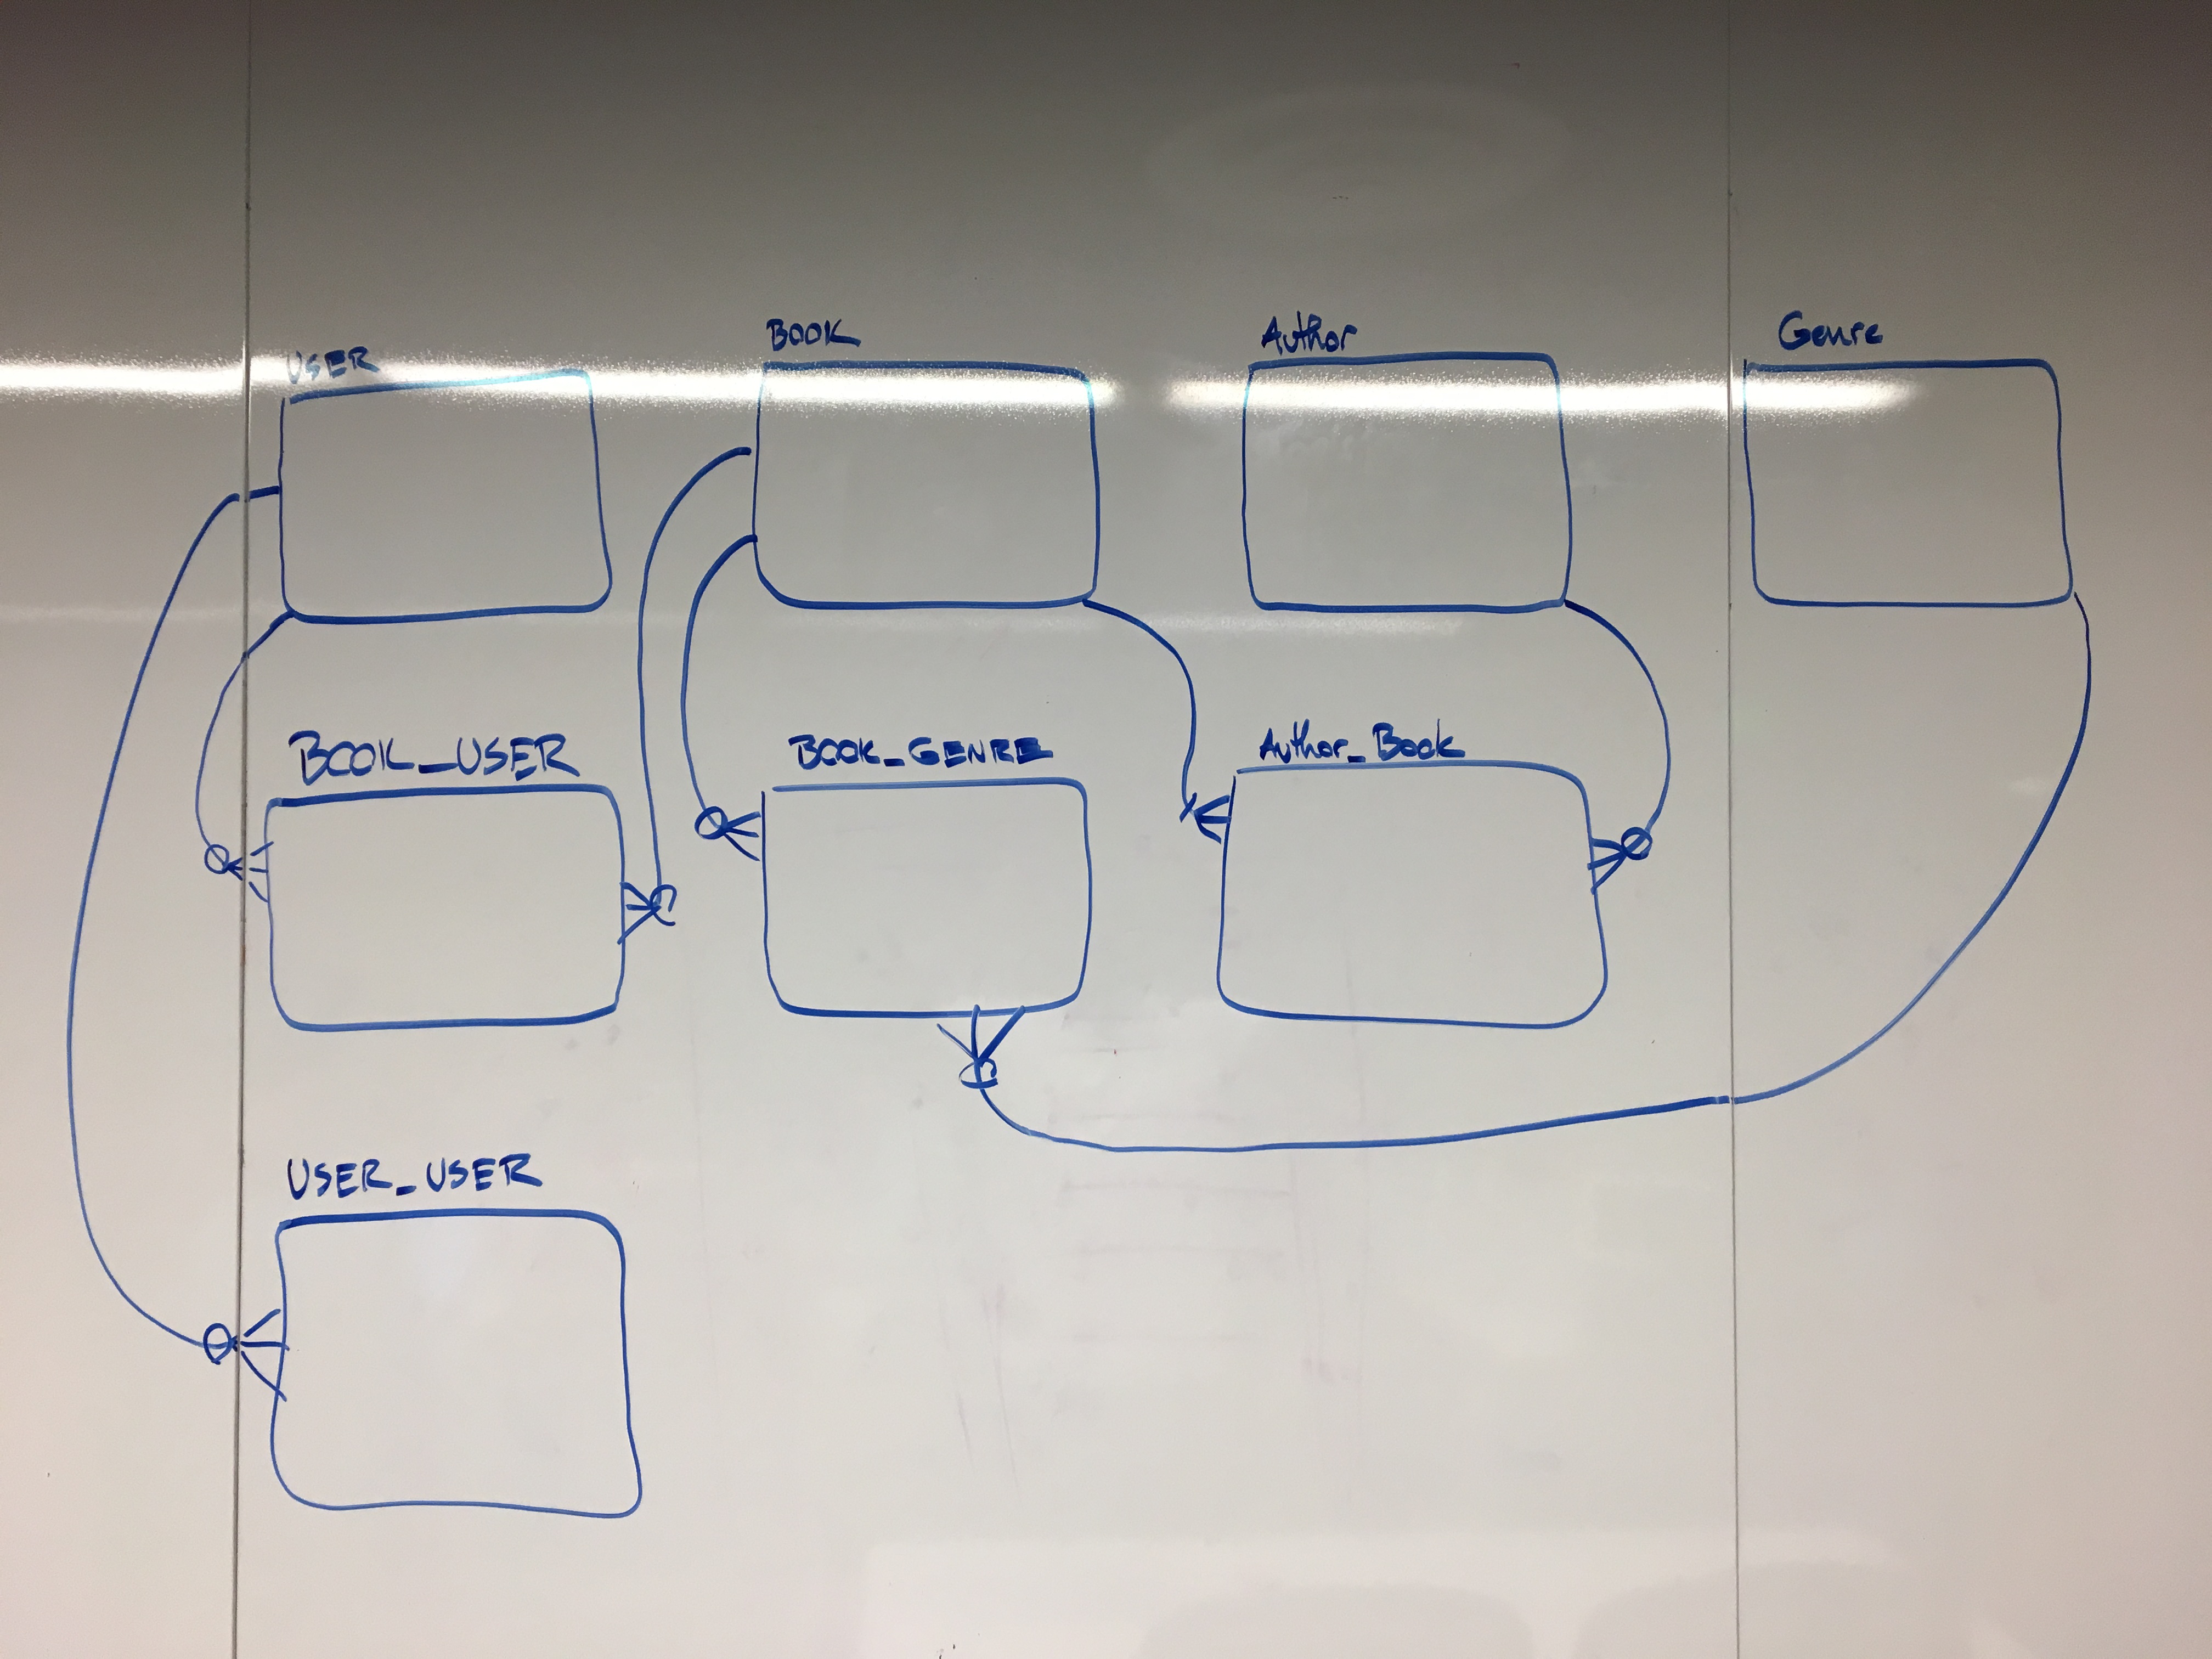 USER
BOOK
Author
Genre
BOOK_USER
BOOK_GENRE
Author_Book
USER_USER